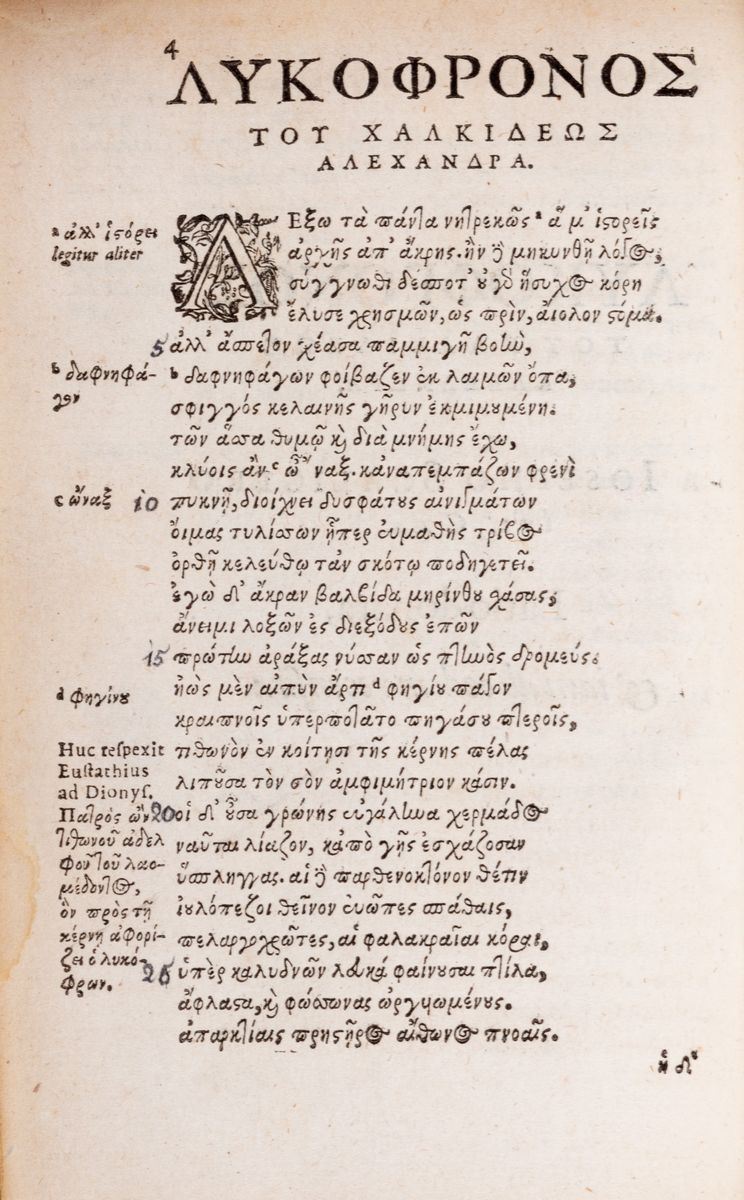 4
ΛΥΚΟΦΡΟΝΟΣ
ΤΟΥ ΧΑΛΚΙΔΕΩΣ
ΑΛΕΧΑΝΔΡΑ.
ΛΕξω τὰ πάντα νητρεκῶς ᵃ ἅ μ' ἱστορεῖς
ἀρχῆς ἀπ' ἄκρης. ἢν δὲ μηκυνθῇ λόγος,
σύγγνωθι δέσποτ' οὐ γὸ ἥσυχος κόρη
ἔλυσε χρησμῶν, ὡς πρὶν, αἰόλον στόμα.
5 ἀλλ' ἄσπετον χέασα παμμιγῆ βοὴν,
ᵇ δαφνηφάγων φοίβαζεν ἐκ λαιμῶν ὄπα,
σφιγγός κελαινῆς γῆρυν ἐκμιμουμένη.
τῶν ἅσσα θυμῷ καὶ διὰ μνήμης ἔχω,
κλύοις ἂν ᶜ ὦ ''ναξ. κἀναπεμπάζων φρενὶ
10 πυκνῇ, διοίχνει δυσφάτους αἰνιγμάτων
οἴμας τυλίσσων ᾗπερ εὐμαθὴς τρίβος
ὀρθῇ κελεύθῳ τἀν σκότῳ ποδηγετεῖ.
ἐγὼ δ' ἄκραν βαλβίδα μηρίνθου χάσας,
ἄνειμι λοξῶν ἐς διεξόδους ἐπῶν
15 πρώτην ἀράξας νύσσαν ὡς πτηνὸς δρομεύς.
ἠὼς μὲν αἰπὺν ἄρτι ᵈ φηγίου πάγον
κραιπνοῖς ὑπερποτᾶτο πηγάσου πτεροῖς,
τιθωνὸν ἐν κοίτῃσι τῆς κέρνης πέλας
λιποῦσα τὸν σὸν ἀμφιμήτριον κάσιν.
20 οἱ δ' οὖσα γρώνης εὐγάληνα χερμάδος
ναῦται λίαζον, κἀπὸ γῆς ἐσχάζοσαν
ὕσπληγγας. αἱ δὲ παρθενοκτόνον θέτιν
ἰουλόπεζοι θεῖνον εὐῶπες σπάθαις,
πελαργοχρῶτες, αἱ φαλακραῖαι κόραι,
25 ὑπὲρ καλυδνῶν λευκά φαίνουσαι πτίλα,
ἄφλαστα, καὶ φώσσωνας ὠργυωμένους.
ἀπαρκτίαις πρηστῆρος αἴθωνος πνοαῖς.
ἡ δὲ
ᵃ ἀλλ' ἱστόρει
legitur aliter
ᵇ δαφνηφά-
γον
ᶜ ὦναξ
ᵈ φηγίνου
Huc respexit
Eustathius
ad Dionys.
Πατρὸς ὢν
τιθωνοῦ ἀδελ
φοῦ τοῦ λαο-
μέδοντος,
ὃν πρὸς τῇ
κέρνῃ ἀφορί-
ζει ὁ λυκό-
φρων.